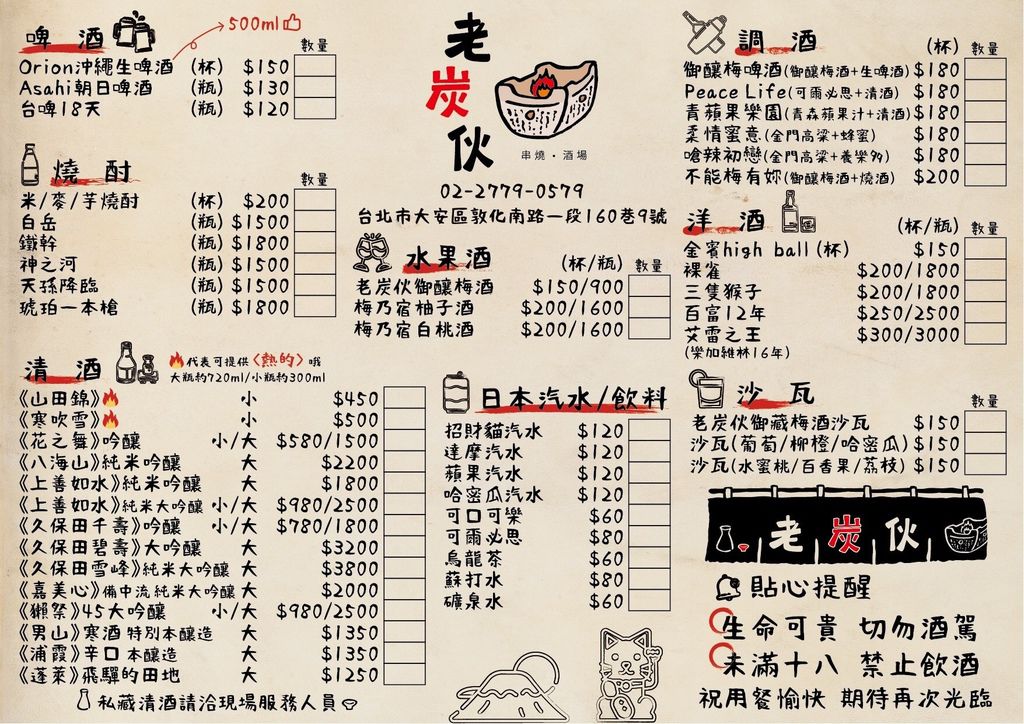 啤酒
500ml
數量
Orion沖繩生啤酒 (杯) $150
Asahi朝日啤酒 (瓶) $130
台啤18天 (瓶) $120
燒酎
數量
米/麥/芋燒酎 (杯) $200
白岳 (瓶) $1500
鐵幹 (瓶) $1800
神之河 (瓶) $1500
天孫降臨 (瓶) $1500
琥珀一本槍 (瓶) $1800
清酒
代表可提供〈熱的〉哦
大瓶約720ml/小瓶約300ml
《山田錦》 小 $450
《寒吹雪》 小 $500
《花之舞》吟釀 小/大 $580/1500
《八海山》純米吟釀 大 $2200
《上善如水》純米吟釀 大 $1800
《上善如水》純米大吟釀 小/大 $980/2500
《久保田千壽》吟釀 小/大 $780/1800
《久保田碧壽》大吟釀 大 $3200
《久保田雪峰》純米大吟釀 大 $3800
《嘉美心》備中流 純米大吟釀 大 $2000
《獺祭》45大吟釀 小/大 $980/2500
《男山》寒酒 特別本釀造 大 $1350
《浦霞》辛口 本釀造 大 $1350
《蓬萊》飛驒的田地 大 $1250
私藏清酒請洽現場服務人員
老炭伙
串燒・酒場
02-2779-0579
台北市大安區敦化南路一段160巷9號
水果酒 (杯/瓶) 數量
老炭伙御釀梅酒 $150/900
梅乃宿柚子酒 $200/1600
梅乃宿白桃酒 $200/1600
日本汽水/飲料
數量
招財貓汽水 $120
達摩汽水 $120
蘋果汽水 $120
哈密瓜汽水 $120
可口可樂 $60
可爾必思 $80
烏龍茶 $60
蘇打水 $80
礦泉水 $60
調酒 (杯) 數量
御釀梅啤酒(御釀梅酒+生啤酒) $180
Peace Life(可爾必思+清酒) $180
青蘋果樂園(青森蘋果汁+清酒) $180
柔情蜜意(金門高粱+蜂蜜) $180
嗆辣初戀(金門高粱+養樂多) $180
不能梅有妳(御釀梅酒+燒酒) $200
洋酒 (杯/瓶) 數量
金賓high ball (杯) $150
裸雀 $200/1800
三隻猴子 $200/1800
百富12年 $250/2500
艾雷之王 $300/3000
(樂加維林16年)
沙瓦
數量
老炭伙御藏梅酒沙瓦 $150
沙瓦(葡萄/柳橙/哈密瓜) $150
沙瓦(水蜜桃/百香果/荔枝) $150
老炭伙
貼心提醒
生命可貴 切勿酒駕
未滿十八 禁止飲酒
祝用餐愉快 期待再次光臨